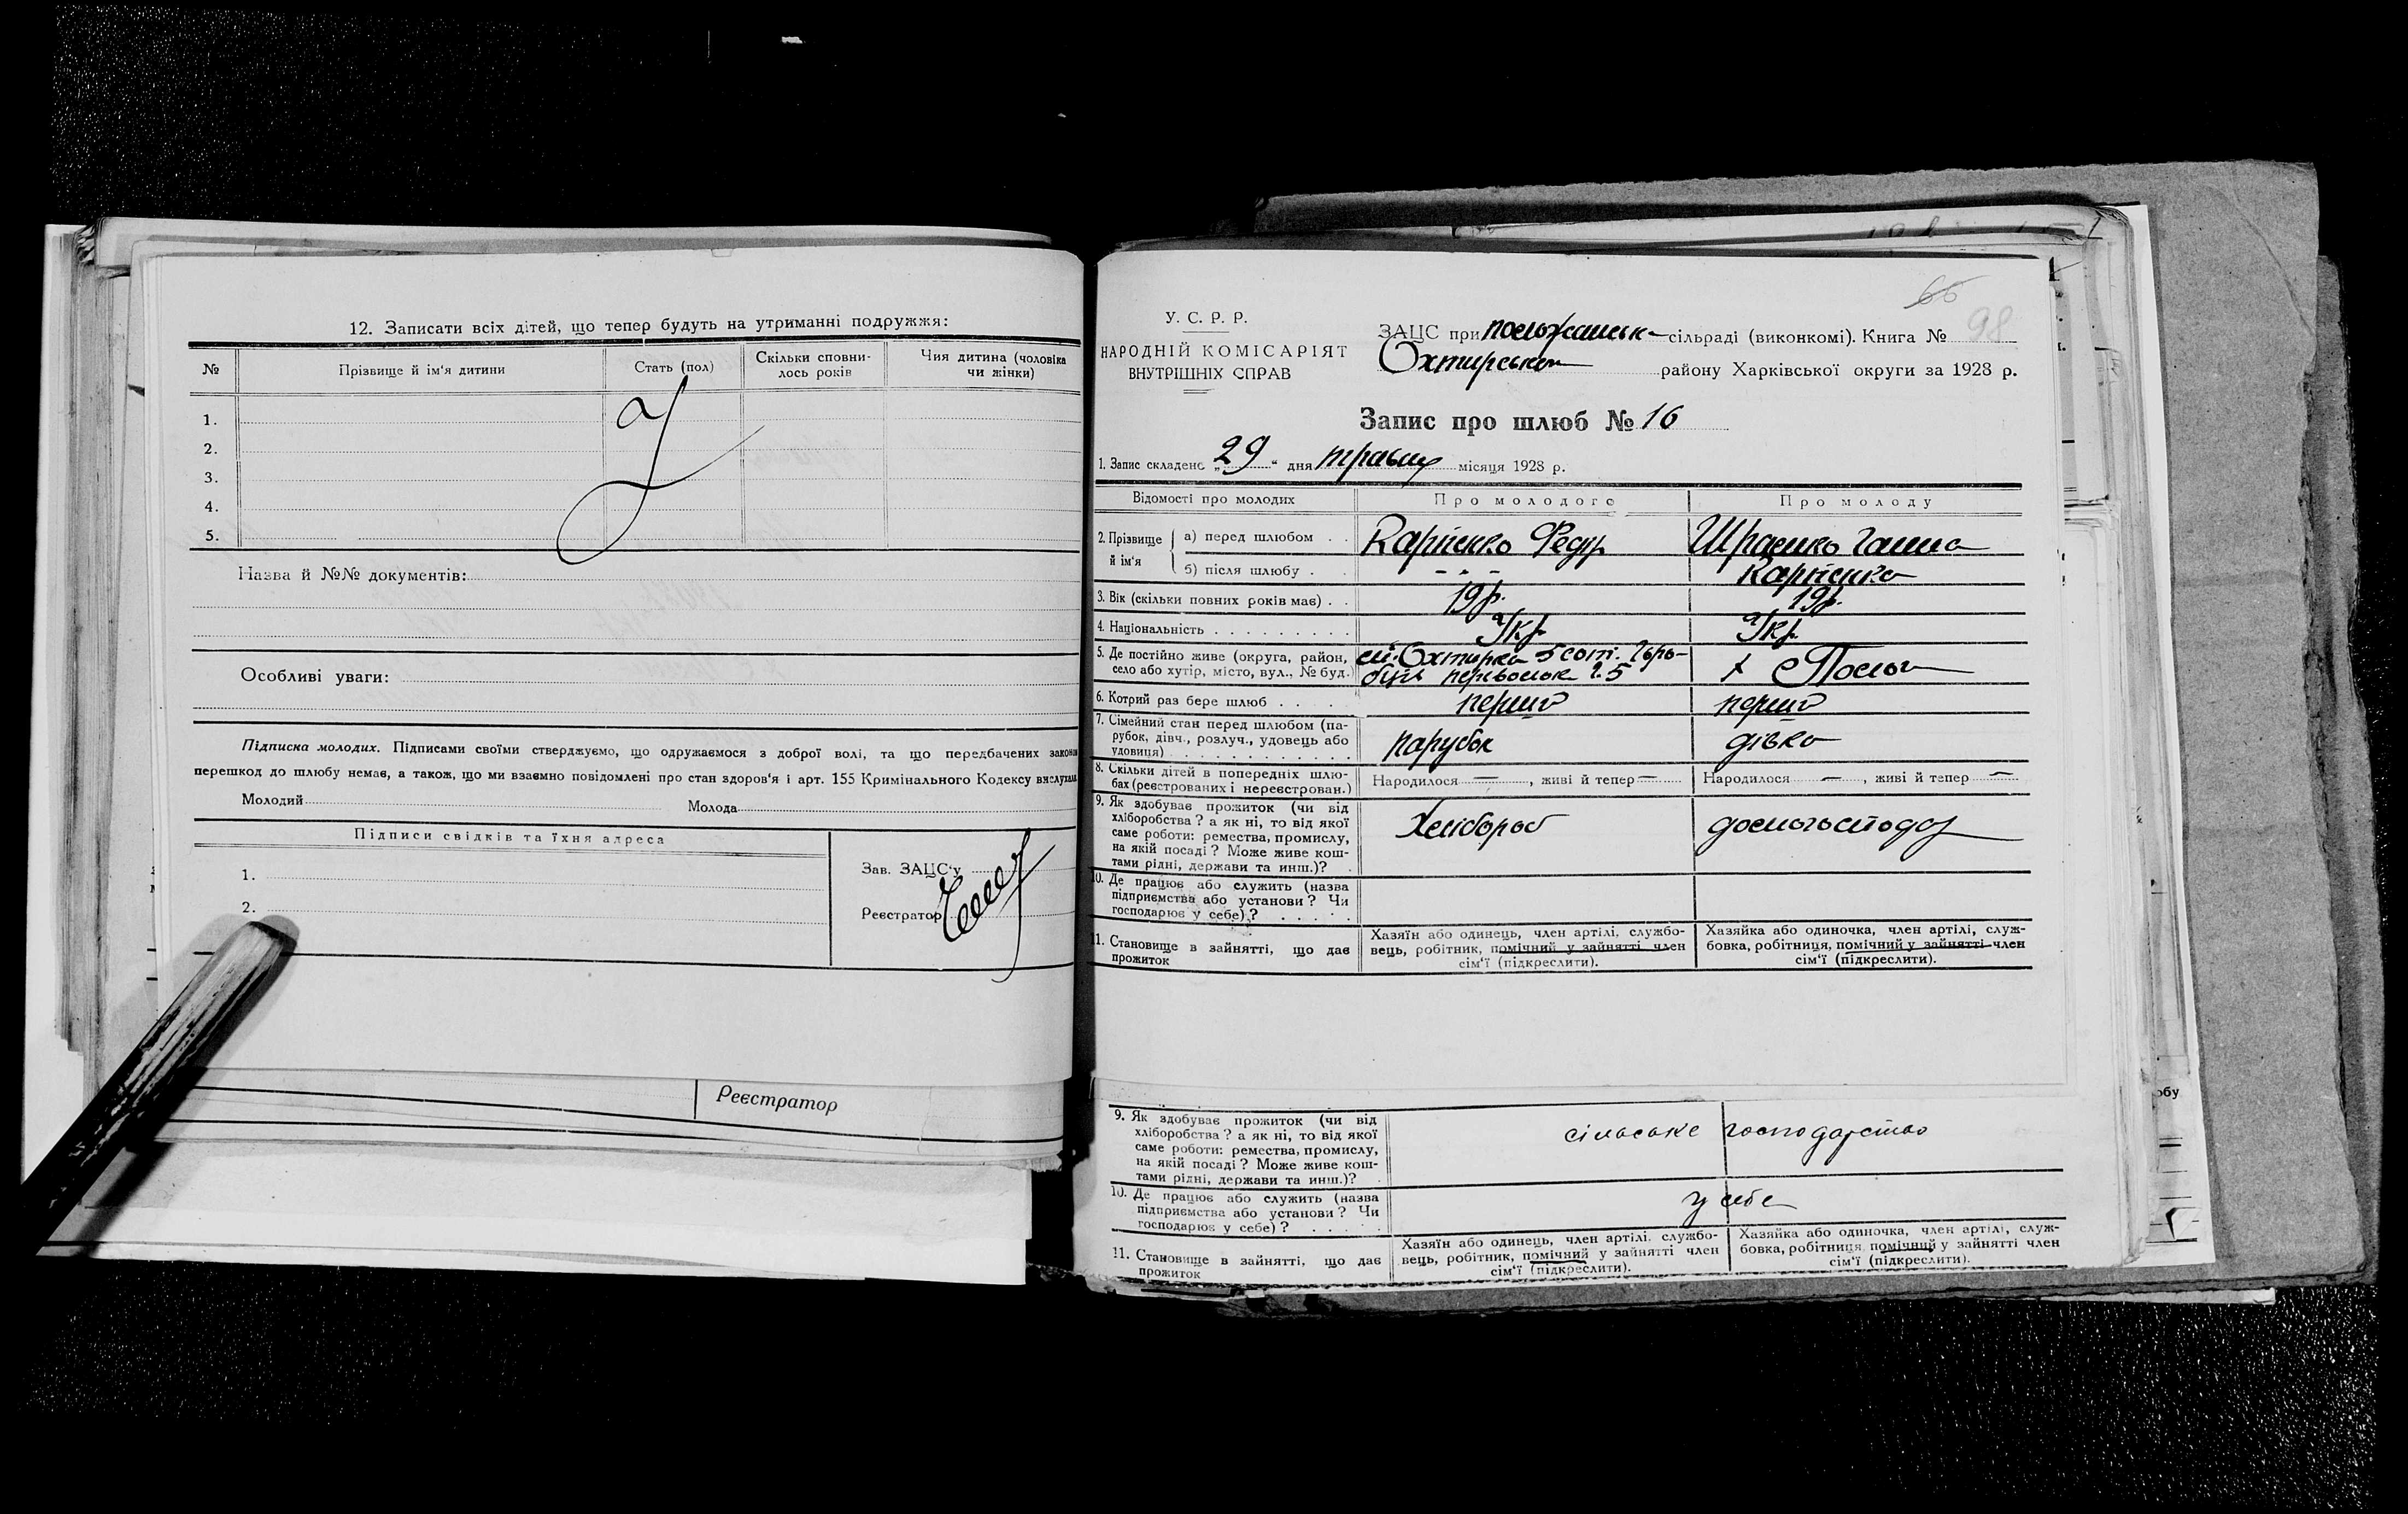 12. Записати всіх дітей, що тепер будуть на утриманні подружжя:
№
Прізвище й ім'я дитини
Стать (пол)
Скільки сповни-
лось років
Чия дитина (чоловіка
чи жінки)
1.
2.
3.
4.
5.
Назва й №№ документів:
Особливі уваги:
Підписка молодих. Підписами своїми стверджуємо, що одружаємося з доброї волі, та що передбачених законом
перешкод до шлюбу немає, а також, що ми взаємно повідомлені про стан здоров'я і арт. 155 Кримінального Кодексу вислухали
Молодий
Молода
Підписи свідків та їхня адреса
1.
2.
Зав. ЗАЦС'у
Реєстратор
Реєстратор
65
98
У. С. Р. Р.
НАРОДНІЙ КОМІСАРІЯТ
ВНУТРІШНІХ СПРАВ
ЗАЦС при сільраді (виконкомі). Книга №
Охтирськом району Харківської округи за 1928 р.
Запис про шлюб № 16
1. Запис складено „29" дня травня місяця 1928 р.
Відомості про молодих
Про молодого
Про молоду
2. Прізвище й ім'я
а) перед шлюбом . .
Карпенко Федір
Ганна
б) після шлюбу . .
- " -
Карпенко
3. Вік (скільки повних років має) . .
19 р.
19 р.
4. Національність . . . . . . . . .
Укр.
Укр.
5. Де постійно живе (округа, район,
село або хутір, місто, вул., № буд.)
м. Охтирка 5 сот.
6. Котрий раз бере шлюб . . . .
перший
перший
7. Сімейний стан перед шлюбом (па-
рубок, дівч., розлуч., удовець або
удовиця) . . . . . . . . . . . .
парубок
дівка
8. Скільки дітей в попередніх шлю-
бах (реєстрованих і нереєстрован.)
Народилося — , живі й тепер —
Народилося — , живі й тепер —
9. Як здобуває прожиток (чи від
хліборобства? а як ні, то від якої
саме роботи: ремества, промислу,
на якій посаді? Може живе кош-
тами рідні, держави та инш.)? .
Хлібороб
10. Де працює або служить (назва
підприємства або установи? Чи
господарює у себе)? . . . . .
11. Становище в зайнятті, що дає
прожиток
Хазяїн або одинець, член артілі, службо-
вець, робітник, помічний у зайнятті член
сім'ї (підкреслити).
Хазяйка або одиночка, член артілі, служ-
бовка, робітниця, помічний у зайнятті член
сім'ї (підкреслити).
9. Як здобуває прожиток (чи від
хліборобства? а як ні, то від якої
саме роботи: ремества, промислу,
на якій посаді? Може живе кош-
тами рідні, держави та инш.)? .
сільське господарство
10. Де працює або служить (назва
підприємства або установи? Чи
господарює у себе)? . . . . .
у себе
11. Становище в зайнятті, що дає
прожиток
Хазяїн або одинець, член артілі, службо-
вець, робітник, помічний у зайнятті член
сім'ї (підкреслити).
Хазяйка або одиночка, член артілі, служ-
бовка, робітниця, помічний у зайнятті член
сім'ї (підкреслити).